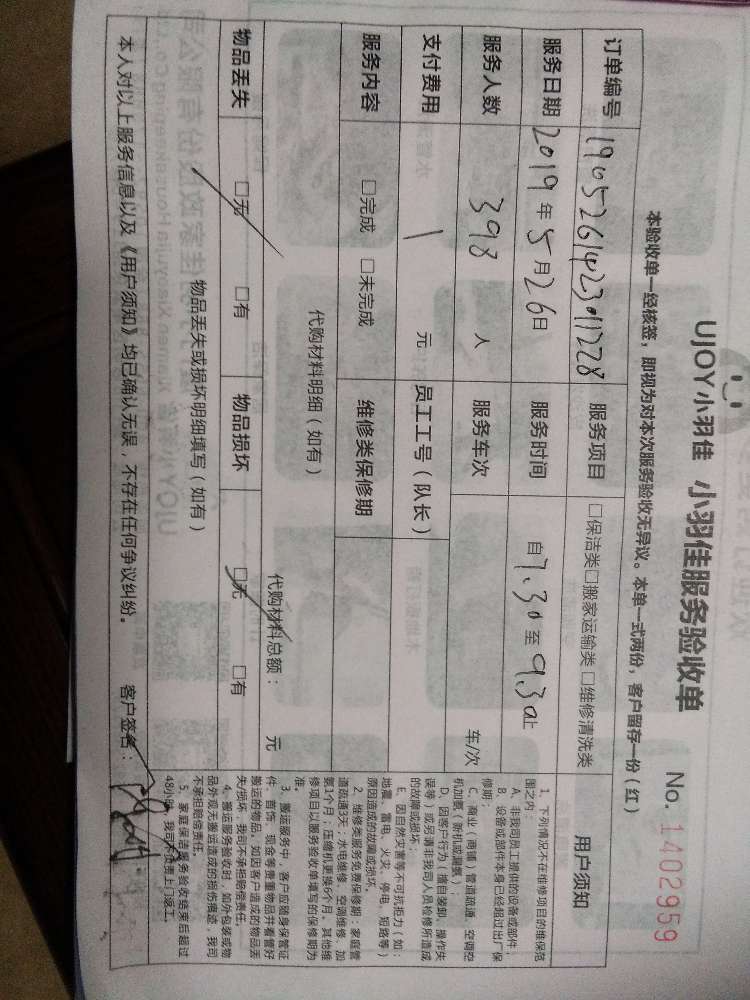 UJOY小羽佳 小羽佳服务验收单 No. 1402959
本验收单一经核签，即视为对本次服务验收无异议。本单一式两份，客户留存一份（红）
订单编号 服务项目 □保洁类□搬家运输类□维修清洗类
服务日期 2019年5月26日 服务时间 自7.30至9.30止
服务人数 398 人 服务车次 车/次
支付费用 1 元 员工工号（队长）
服务内容 □完成 □未完成 维修类保修期
代购材料明细（如有）
代购材料总额： 元
物品丢失 □无 □有 物品损坏 □无 □有
物品丢失或损坏明细填写（如有）
本人对以上服务信息以及《用户须知》均已确认无误，不存在任何争议纠纷。 客户签名：
用户须知
1、下列情况不在维修项目的维保范
围之内：
A、非我司员工提供的设备或部件；
B、设备或部件本身已经超过出厂保
修期；
C、商业（商铺）管道疏通、空调空
机加氨（新机或漏氨）；
D、因客户行为（擅自装卸、操作失
误等）或另请非我司人员检修所造成
的故障或损坏；
E、因自然灾害等不可抗拒力（如：
地震、雷电、火灾、停电、短路等）
原因造成的故障或损坏。
2、维修类服务免费保修期：家庭管
道疏通3天；水电维修、空调维修、加
氨1个月；压缩机更换6个月；其他维
修项目以服务验收单填写的保修期为
准。
3、搬运服务中，客户应随身保管证
件、首饰、现金等贵重物品并看管好
搬运的物品。如因客户造成的物品丢
失/损坏，我司不承担赔偿责任。
4、搬运服务验收时，如外包装或物
品外观无搬运造成的损伤痕迹，我司
不承担赔偿责任。
5、家庭保洁服务验收结束后超过
48小时，我司不负责上门返工。